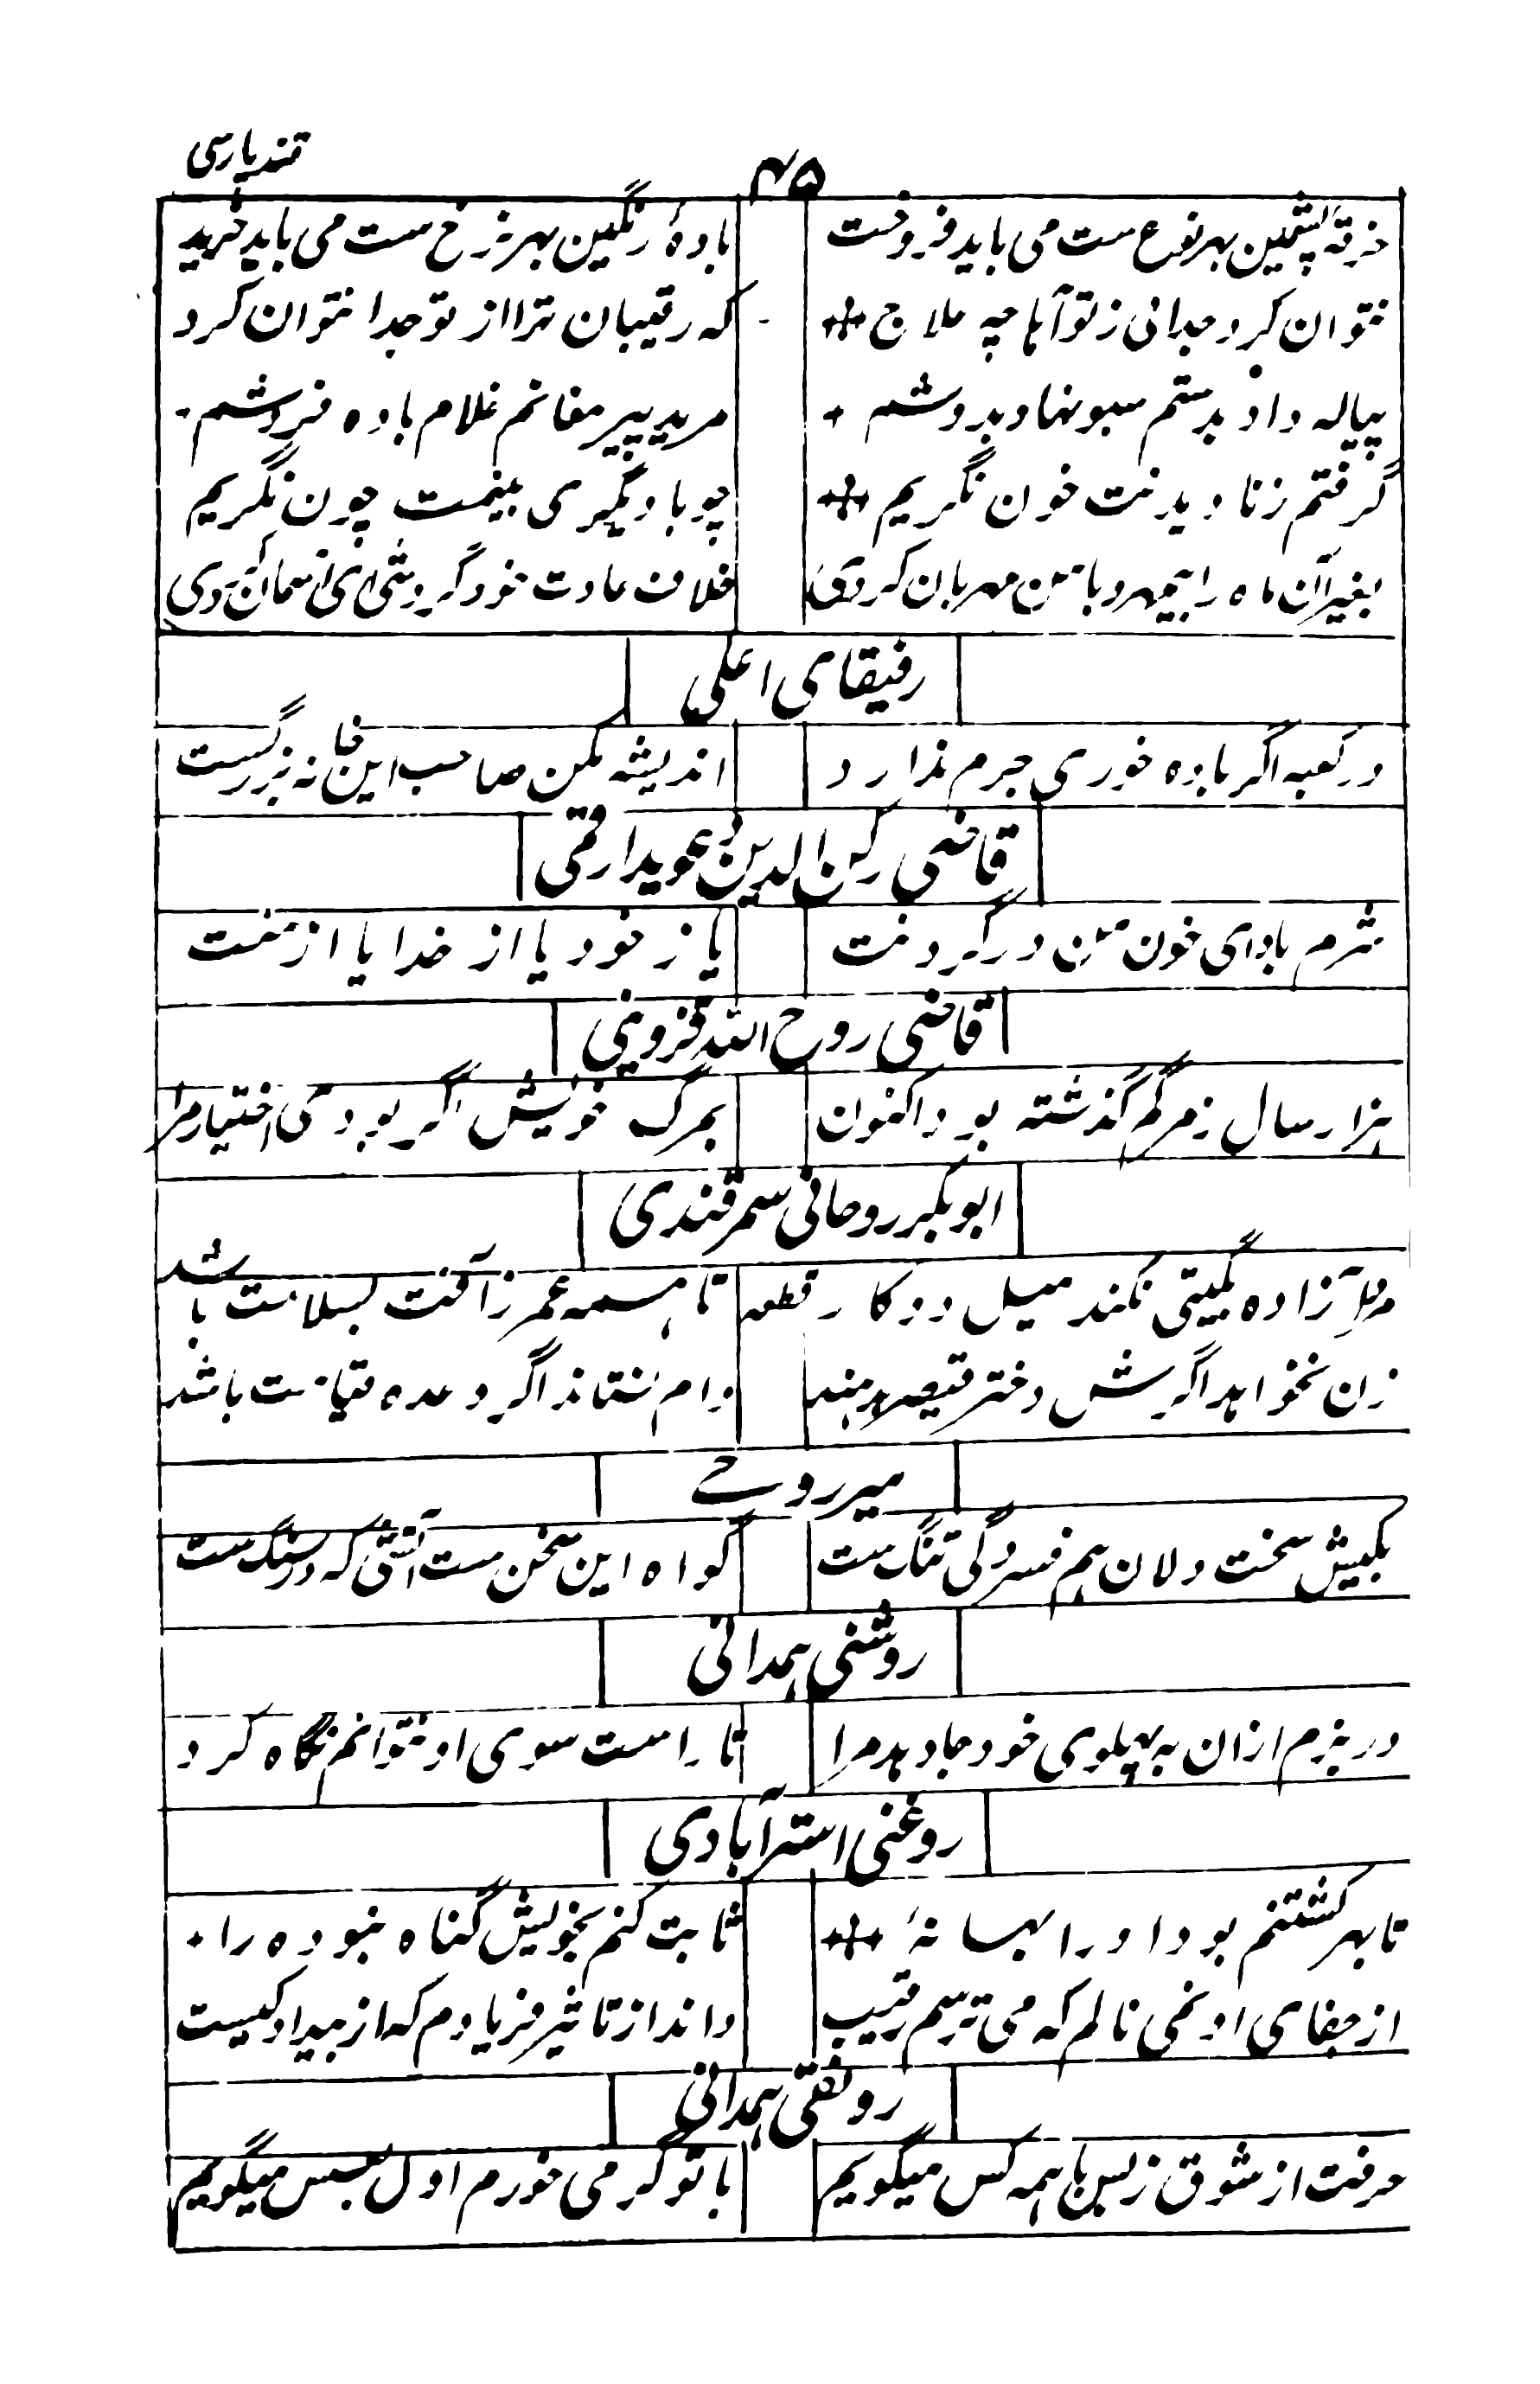 قند پارسی
۴۵
خرقهٔ پشمین بهر نوع ست می باید فروخت بادهٔ رنگین بهر نرخ ست می باید خرید
نتوان کرد جدائی ز تو آیا چه علاج که رقیبان ترا از تو جدا نتوان کرد
پیاله داد بدستم سبو نهاد بدوشم مرید پیر مغانم غلام باده فروشم
گرفتم ز نا دیدنت خون نگریم چو با دیگری بینمت چون نگریم
بغیر آن ماه را بیمهر و با من مهربان کردی خلاف عادت خود گردشی ای آسمان کردی
رفیقای اعلی
در کعبه اگر باده خوری جرم ندارد اندیشه مکن صاحب این خانه بزرگست
قاضی رکن الدین عویدار قمی
شرم باد ای خون من در گردنت یا ز خود یا از خدا یا از منت
قاضی روح الله قزوینی
هزار سال ز مرگم گذشته بود اکنون بمرگ خویش اگر بودمی اختیار مرا
ابوبکر روحانی سمرقندی
مرد آزاده بگیتی نکند میل دو کار قطعه تا همه عمر ز آفت بسلامت باشد
زن نخواهد اگرش دختر قیصر بدهند وام نستاند اگر وعده قیامت باشد
میر روحے
بکیش سخت دلان هم فسردگی ننگ ست گواه این سخن ست آتشی که در سنگ ست
روشنی همدانی
در بزم ازان به پهلوی خود جا دهد مرا تا راست سوی او نتوانم نگاه کرد
روغنی استرآبادی
تا بهر کشتنم بود او را بهانهٔ ثابت کنم بخویش گناه نبوده را
از جفای او نمی نالم که می ترسم رقیب داند از تاثیر فریادم که از بیداد کیست
رونقی همدانی
حرفت از شوق ز بس با همه کس میگویم با تو گر می خورم اول بعسس میگویم